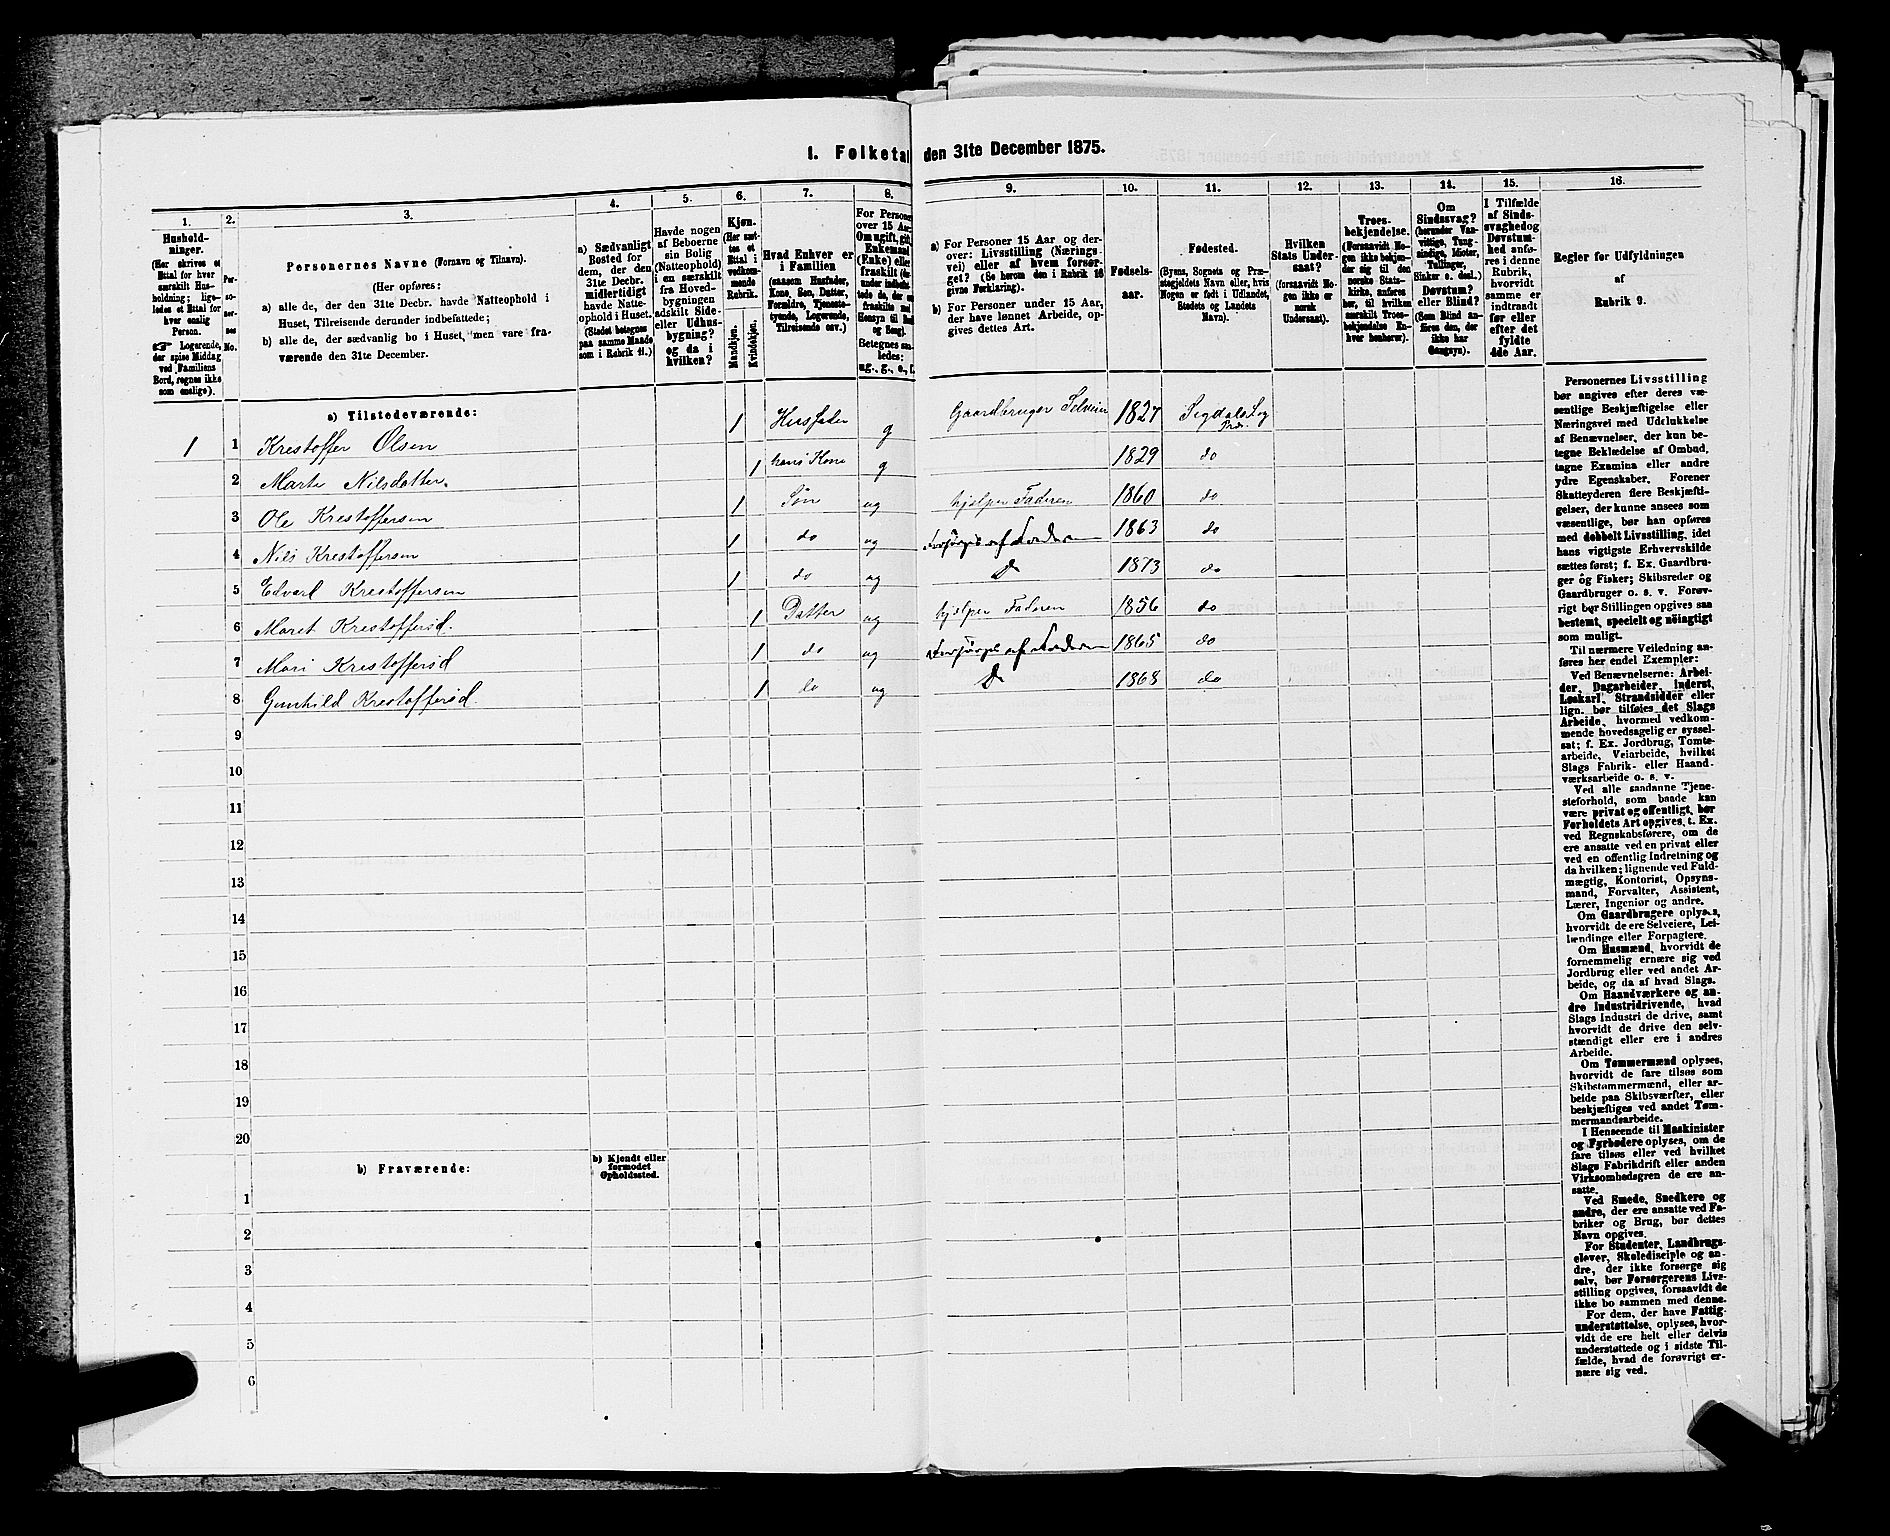 1. Folketal den 31te December 1875.
1. 2. 3. 4. 5. 6. 7. 8. 9. 10. 11. 12. 13. 14. 15. 16.
Hushold-
ninger.
(Her skrives et
Ettal for hver
særskilt Hus-
holdning; lige-
ledes et Ettal for
hver enslig
Person.
☞ Logerende,
der spise Middag
ved Familiens
Bord, regnes ikke
som enslige).
Per-
so-
ner-
nes
No.
Personernes Navne (Fornavn og Tilnavn).
(Her opføres:
a) alle de, der den 31te Decbr. havde Natteophold i
Huset, Tilreisende derunder indbefattede;
b) alle de, der sædvanlig bo i Huset, men vare fra-
værende den 31te December.
a) Sædvanligt
Bosted for
dem, der den
31te Decbr.
midlertidigt
havde Natte-
ophold i Huset.
(Stedet betegnes
paa samme Maade
som i Rubrik 11.)
Havde nogen
af Beboerne
sin Bolig
(Natteophold)
i en særskilt
fra Hoved-
bygningen
adskilt Side-
eller Udhus-
bygning?
og da i
hvilken?
Kjøn.
(Her sæt-
tes et
Ettal i
vedkom-
mende
Rubrik.
Mandkjøn.
Kvindekjøn.
Hvad Enhver er
i Familien
(saasom Husfader,
Kone, Søn, Datter,
Forældre, Tjeneste-
tyende, Logerende,
Tilreisende osv.)
For Personer
over 15 Aar:
Om ugift, gift,
Enkemand
(Enke) eller
fraskilt
Betegnes saa-
ledes:
ug., g., e., f.
a) For Personer 15 Aar og der-
over: Livsstilling (Nærings-
vei) eller af hvem forsør-
get? (Se herom den i Rubrik 16
givne Forklaring).
b) For Personer under 15 Aar,
der have lønnet Arbeide, op-
gives dettes Art.
Fødsels-
aar.
Fødested.
(Byens, Sognets og Præ-
stegjeldets Navn eller, hvis
Nogen er født i Udlandet,
Stedets og Landets
Navn).
Hvilken
Stats Under-
saat?
(forsaavidt No-
gen ikke er
norsk
Undersaat).
Troes-
bekjendelse.
(Forsaavidt No-
gen ikke bekjen-
der sig til den
norske Stats-
kirke, anføres
her, til hvilken
særskilt Troes-
bekjendelse En-
hver henhører).
Om
Sindssvag?
(herunder Van-
vittige, Tung-
sindige, Idioter,
Tullinger,
Sinker o. desl.)
Døvstum?
eller Blind?
(Som Blind an-
føres den, der
ikke har
Gangsyn).
I Tilfælde
af Sinds-
svaghed og
Døvstum-
hed anfø-
res i denne
Rubrik,
hvorvidt
samme er
indtraadt
før eller
efter det
fyldte
4de Aar.
Regler for Udfyldningen
af
Rubrik 9.
a) Tilstedeværende:
1 1 Krestoffer Olsen 1 Husfader g Gaardbruger Selveier 1827 Sigdals Sog Præ.
2 Marte Nilsdatter. 1 hans Kone g 1829 do
3 Ole Krestoffersen 1 Søn ug hjelper Faderen 1860 do
4 Nils Krestoffersen 1 do ug Forsørges af Faderen 1863 do
5 Edvart Krestoffersen 1 do ug D 1873 do
6 Maret Krestoffersd. 1 Datter ug hjelper Faderen 1856 do
7 Mari Krestoffersd 1 do ug Forsørges af Faderen 1865 do
8 Gunhild Krestoffersd. 1 do ug D 1868 do
9
10
11
12
13
14
15
16
17
18
19
20
b) Fraværende:
b) Kjendt eller
formodet
Opholdssted.
1
2
3
4
5
6
Personernes Livsstilling
bør angives efter deres væ-
sentlige Beskjæftigelse eller
Næringsvei med Udelukkelse
af Benævnelser, der kun be-
tegne Beklædelse af Ombud,
tagne Examina eller andre
ydre Egenskaber. Forener
Skatteyderen flere Beskjæfti-
gelser, der kunne ansees som
væsentlige, bør han opføres
med dobbelt Livsstilling, idet
hans vigtigste Erhvervskilde
sættes først; f. Ex. Gaardbru-
ger og Fisker; Skibsreder og
Gaardbruger o. s. v. Forøv-
rigt bør Stillingen opgives saa
bestemt, specielt og nöiagtigt
som muligt.
Til nærmere Veiledning an-
føres her endel Exempler:
Ved Benævnelserne: Arbei-
der, Dagarbeider, Inderst,
Løskarl, Strandsidder eller
lign. bør tilføies det Slags
Arbeide, hvormed vedkom-
mende hovedsagelig er syssel-
sat; f. Ex. Jordbrug, Tomte-
arbeide, Veiarbeide, hvilket
Slags Fabrik- eller Haand-
værksarbeide o. s. v.
Ved alle saadanne Tjene-
steforhold, som baade kan
være privat og offentligt, bør
Forholdets Art opgives, t. Ex.
ved Regnskabsførere, om de
ere ansatte ved en privat eller
ved en offentlig Indretning og
da hvilken; lignende ved Fuld-
mægtig, Kontorist, Opsyns-
mand, Forvalter, Assistent,
Lærer, Ingeniør og andre.
Om Gaardbrugere oplyses,
hvorvidt de ere Selveiere, Lei-
lændinge eller Forpagtere.
Om Husmænd, hvorvidt de
fornemmelig ernære sig ved
Jordbrug eller ved andet Ar-
beide, og da af hvad Slags.
Om Haandværkere og an-
dre Industridrivende, hvad
Slags Industri de drive, samt
hvorvidt de drive den selv-
stændigt eller ere i andres
Arbeide.
Om Tømmermænd oplyses,
hvorvidt de fare tilsøs som
Skibstømmermænd, eller ar-
beide paa Skibsværfter, eller
beskjæftiges ved andet Tøm-
mermandsarbeide.
I Henseende til Maskinister
og Fyrbødere oplyses, om de
fare tilsøs eller ved hvilket
Slags Fabrikdrift eller anden
Virksomhedsgren de ere an-
satte.
Ved Smede, Snedkere og
andre, der ere ansatte ved Fa-
briker og Brug, bør dettes
Navn opgives.
For Studenter, Landbrugs-
elever, Skoledisciple og an-
dre, der ikke forsørge sig
selv, bør Forsørgerens Livs-
stilling opgives, forsaavidt de
ikke bo sammen med denne.
For dem, der have Fattig-
understøttelse, oplyses, hvor-
vidt de ere helt eller delvis
understøttede og i sidste Til-
fælde, hvad de forøvrigt er-
nære sig ved.